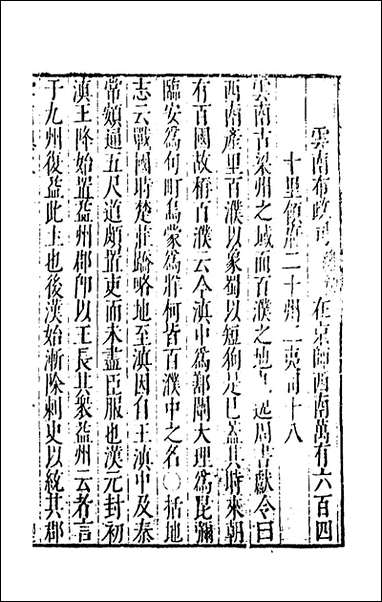 雲南布政司 在京師西南萬有六百四
十里領府二十州二夷司十八
雲南古梁州之域而百濮之地也逸周書獻令曰
西南產里百濮以象齒以短狗是已蓋其時來朝
有百國故稱百濮云今滇中為鄯闡大理為昆彌
臨安為句町烏蒙為牂柯皆百濮中之名○括地
志云戰國時楚莊蹻略地至滇因自王滇中及秦
常頞通五尺道頗置吏而未盡臣服也漢元封初
滇王降始置益州郡仰以王長其衆益州云者言
于九州復益此土也後漢始漸除刺史以統其郡